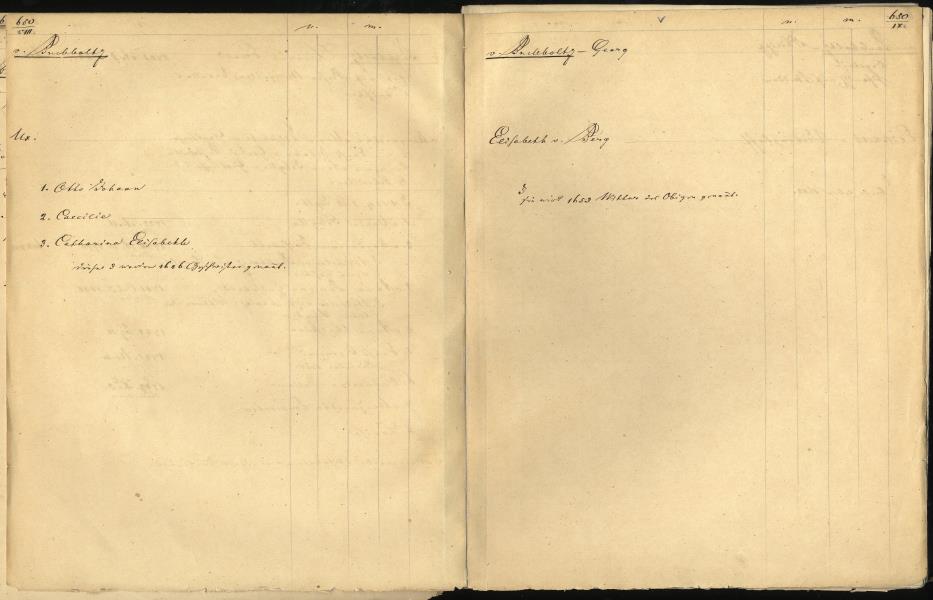 650
VIII.
n. m.
v. Buchholtz
Ux.
1. Otto Johann
2. Caecilie
3. Catharina Elisabeth
diese 3 werden 1626 Geschwister genannt.
n. m.
650
IX.
v. Buchholtz - Georg
Elisabeth v. Berg
sie wird 1653 Wittwe des Obigen genannt.